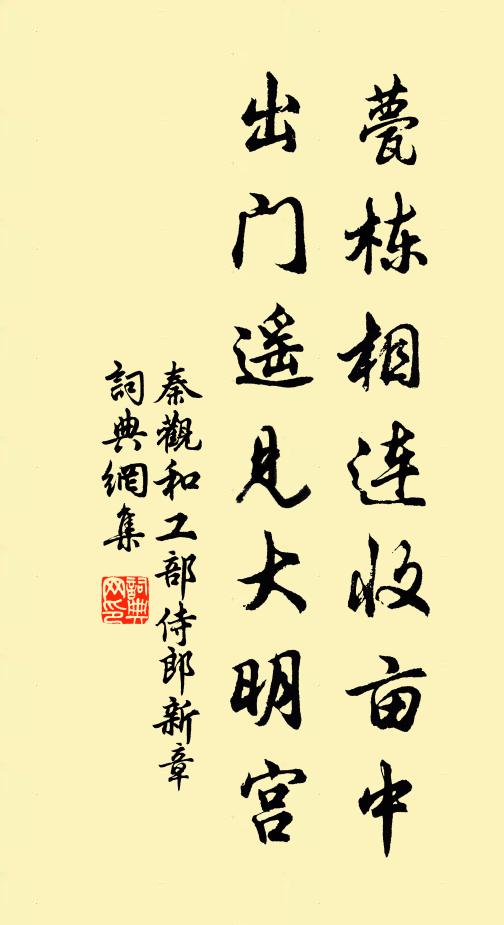 甍栋相连收亩中
出门遥见大明宫
秦觀和工部侍郎新章
詞典網集
詞典網印